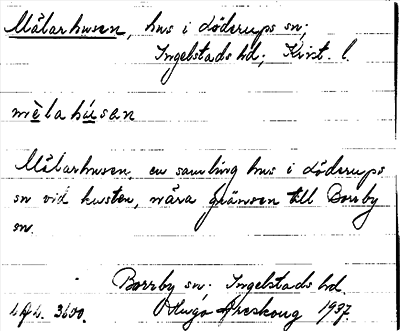 Mälarhusen, hus i Löderups sn;
Ingelstads hd; Krist. l.
mèlahúsan
Mälarhusen, en samling hus i Löderups
sn vid kusten, nära gränsen till Borrby
sn.
Borrby sn. Ingelstads hd.
3600. Areskoug 1937